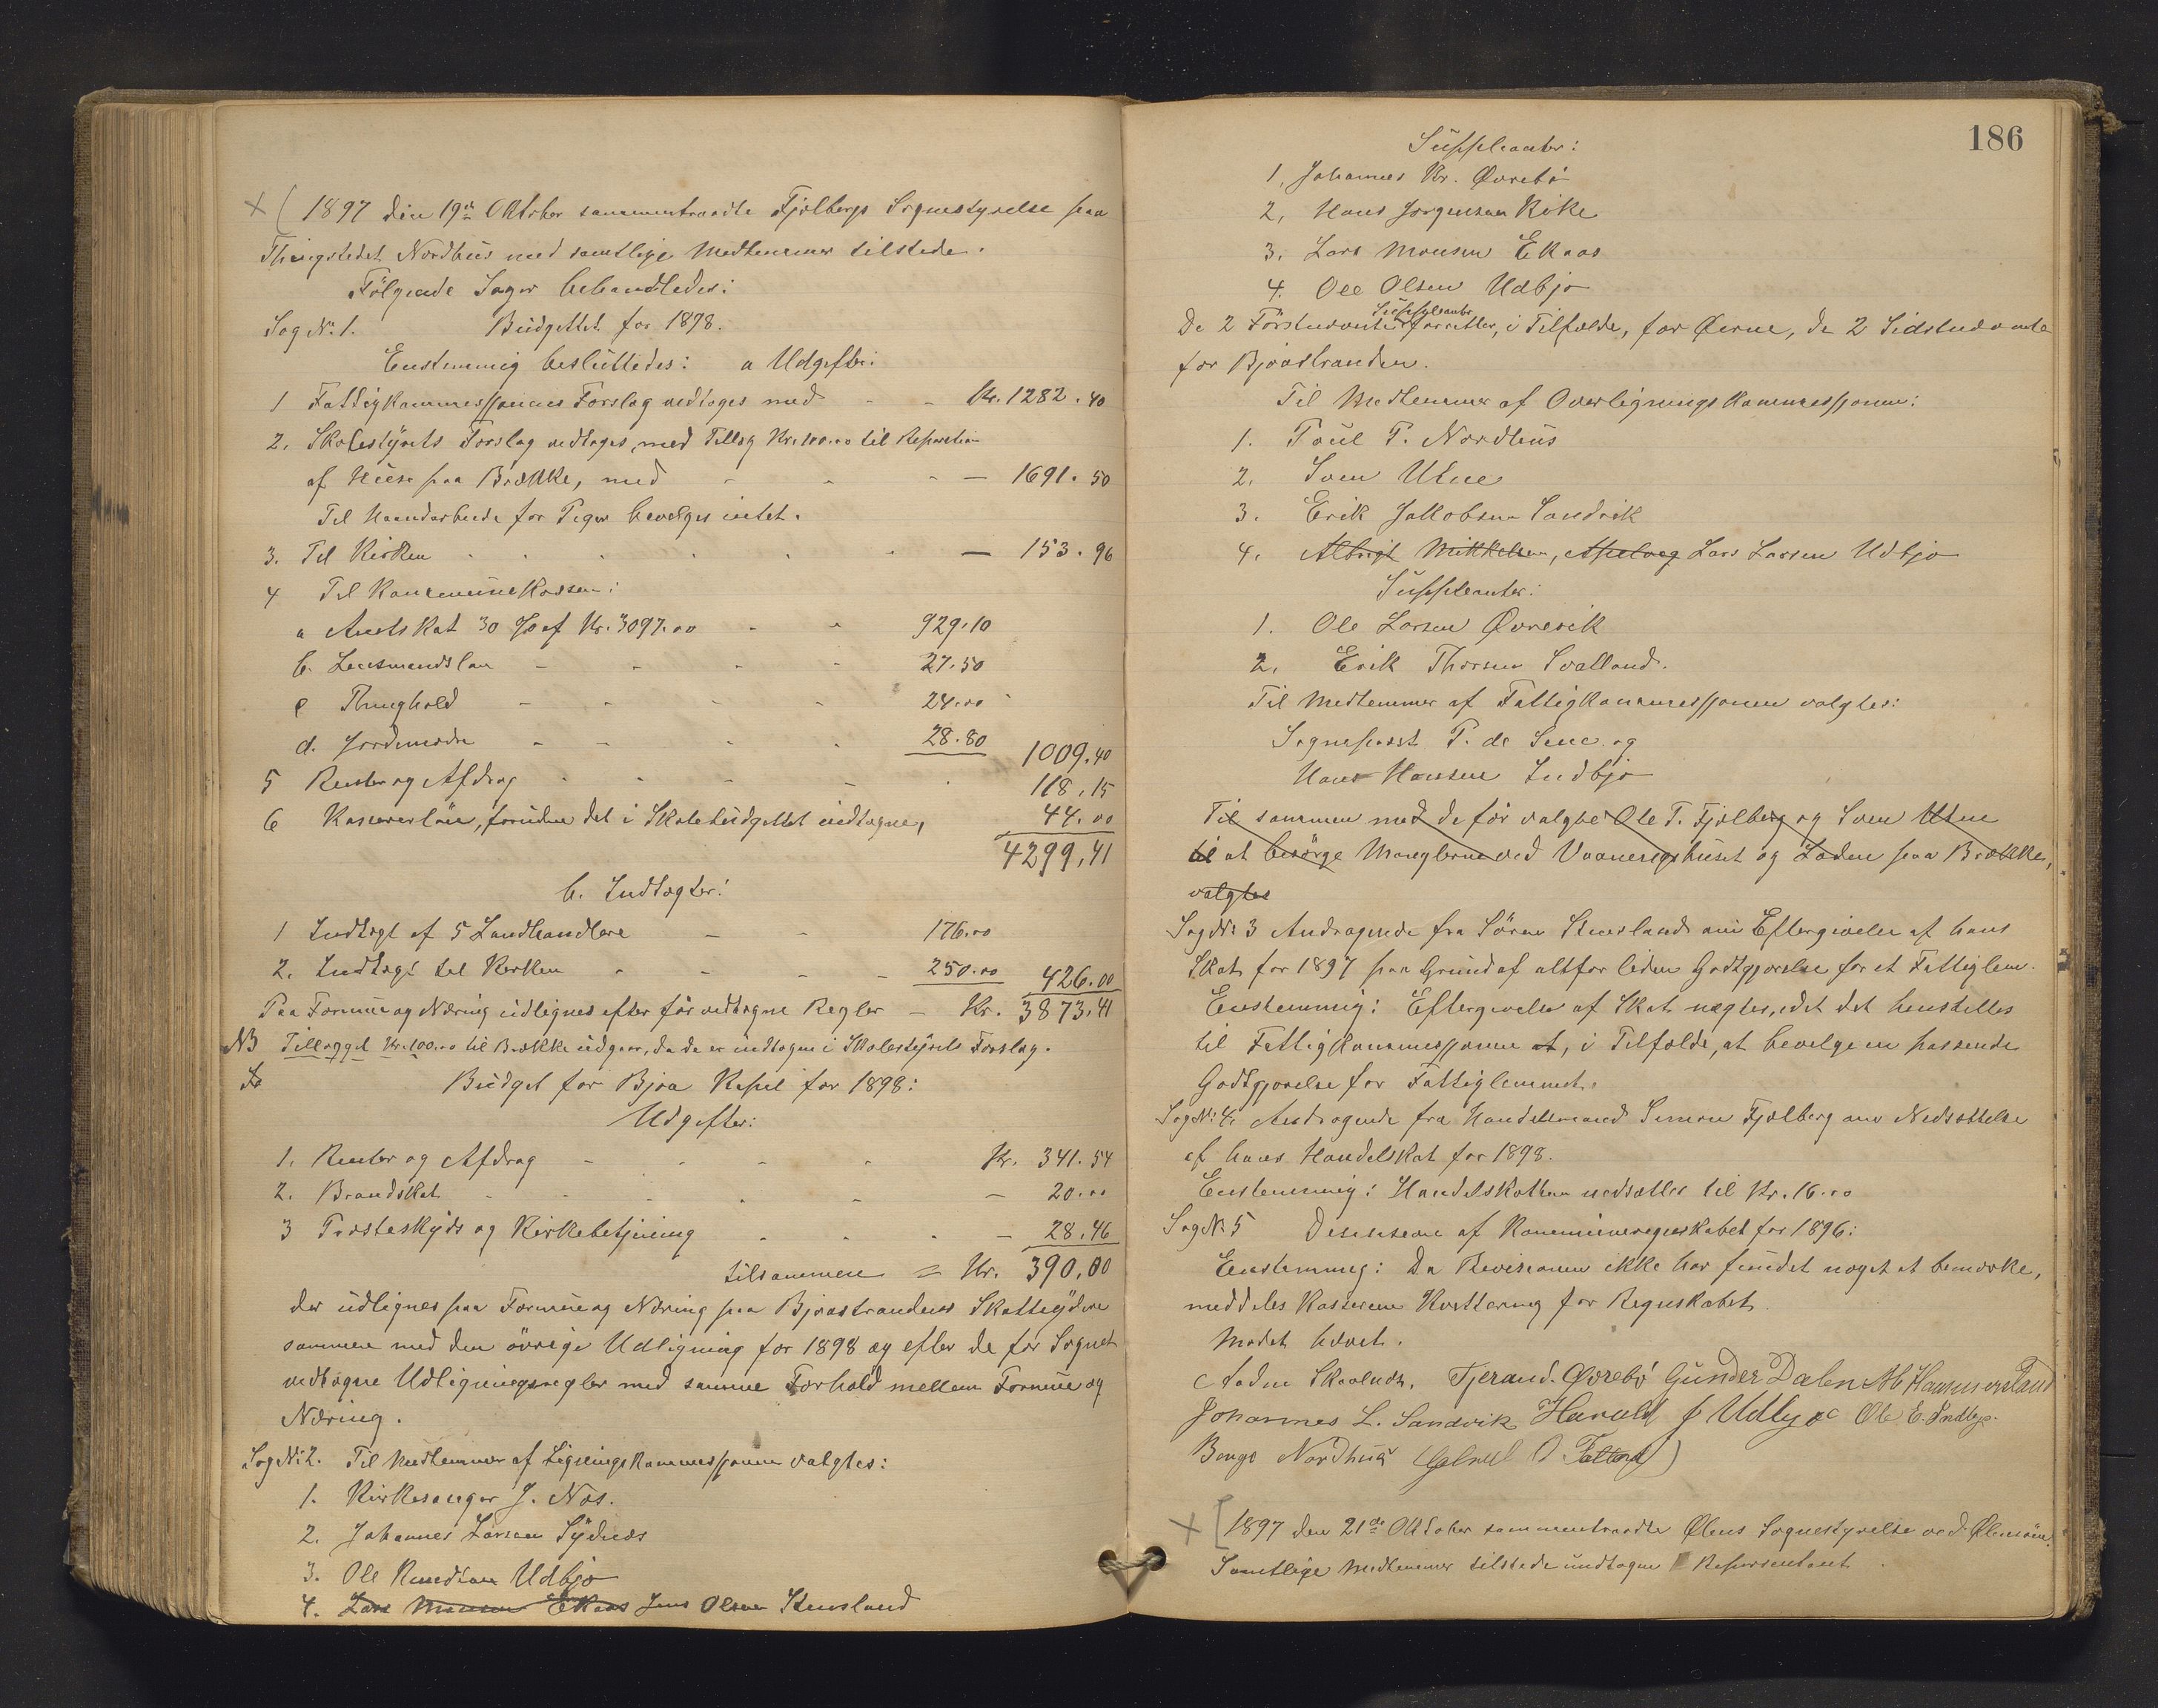 X ( 1897 den 19de Oktober sammentraadte Fjelbergs Sognestyrelse paa
Thingstedet Nordhus med samtlige Medlemmer tilstede.
Følgende Sager behandledes:
Sag No 1. Budgettet for 1898.
Enstemmig besluttedes: a Udgifter:
1 Fattigkommissjonens Forslag vedtoges med - - Kr. 1282.40
2. Skolestyrets Forslag vedtoges, med Tillæg Kr. 100.00 til Reparation
af Huse paa Brække, med - - - 1691.50
Til Haandarbeide for Piger bevilges intet.
3. Til Kirken - 153.96
4 Til Kommunekassen:
a Amtskat 30 % af Kr. 3097.00 - - 929.10
b. Lensmandsløn - - - 27.50
c Thinghold - - - - 24.00
d. Jordmødre - - - 28.80 1009.40
5 Renter og Afdrag - - - 118.15
6 Kassererløn, foruden det i Skolebudgettet indtagne, 44.00
4299,41
b. Indtægter:
1 Indtægt af 5 Landhandlere - - 176.00
2. Indtægt til Kirken - - - 250.00 426.00
Paa Formue og Næring udlignes efter før vedtagne Regler - Kr. 3873,41
NB Tillægget Kr. 100.00 til Brække udgaar, da de er indtagne i Skolestyrets Forslag.
Budget for Bjoa Kapel for 1898:
Udgifter:
1. Renter og Afdrag - - - - Kr. 341.54
2. Brandskat - - - - 20.00
3 Presteskyds og Kirkebetjening - - - 28.46
tilsammen = Kr. 390.00
der udlignes paa Formue og Næring paa Bjoastrandens Skatteydere
sammen med den øvrige Udligning for 1898 og efter de for Sognet
vedtagne Udligningsregler med samme Forhold mellem Formue og
Næring.
Sag No 2. Til Medlemmer af Ligningskommissjonen valgtes:
1. Kirkesanger J. Næs.
2. Johannes Larsen Sydnes
3. Ole Knudsen Udbjo
4. Lars Monsen Ekaas Jens Olsen Stensland
186
Suppleanter:
1, Johannes Kr. Øvrebø
2, Hans Jørgensen Røke
3. Lars Monsen Ekaas
4. Ole Olsen Udbjo
Suppleanter
De 2 Førstnævnte forretter, i Tilfælde, for Øerne, de 2 Sidstnævnte
for Bjoastranden.
Til Medlemmer af Overligningskommissjonen:
1. Poul P. Nordhus
2. Sven Utne
3. Erik Jakobsen Sandvik
4. Albrigt Mikkelsen, Apelveg Lars Larsen Udbjo
Suppleanter:
1. Ole Larsen Øvrevik
2. Erik Thorsen Svalland.
Til Medlemmer af Fattigkommissjonen valgtes:
Sogneprest P. de Seue og
Hans Hansen Indbjo
Til sammen med de før valgte Ole T. Fjelberg og Sven Utne
til at besørge Manglerne ved Vaaningshuset og Laden paa Brække,
valgtes
Sag No 3 Andragende fra Søren Stensland om Eftergivelse af hans
Skat for 1897 paa Grund af altfor liden Godtgjørelse for et Fattiglem.
Enstemmig: Eftergivelse af Skat nægtes, idet det henstilles
til Fattigkommissjonen at, i Tilfælde, at bevilge en passende
Godtgjørelse for Fattiglemmet.
Sag No: 4. Andragende fra Handelsmand Simon Fjelberg om Nedsættelse
af hans Handelskat for 1898.
Enstemmig: Handelskatten nedsættes til Kr. 16.00
Sag No 5 Desission af Kommuneregnskabet for 1896:
Enstemmig: Da Revisionen ikke har fundet noget at bemærke,
meddeles Kassereren Kvittering for Regnskabet.
Mødet hævet.
Aadne Skaaluds. Tjerand. Øvrebö Gunder Dalen Hammersland
Johannes L. Sandvik Harald J Udbjoe Ole E. Indbjo.
Benge Nordhus
X [ 1897 den 21de Oktober sammentraadte Ølens Sognestyrelse ved Ølensøen.
Samtlige Medlemmer tilstede undtagen Representant